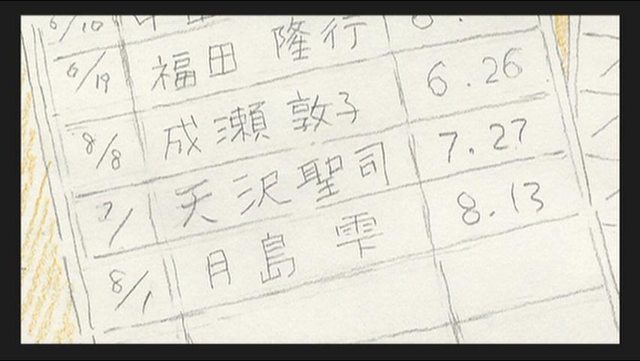 6/10
6/19 福田 隆行 6.26
8/8 成瀬 敦子 7.27
7/ 天沢 聖司 8.13
8/1 月島 雫